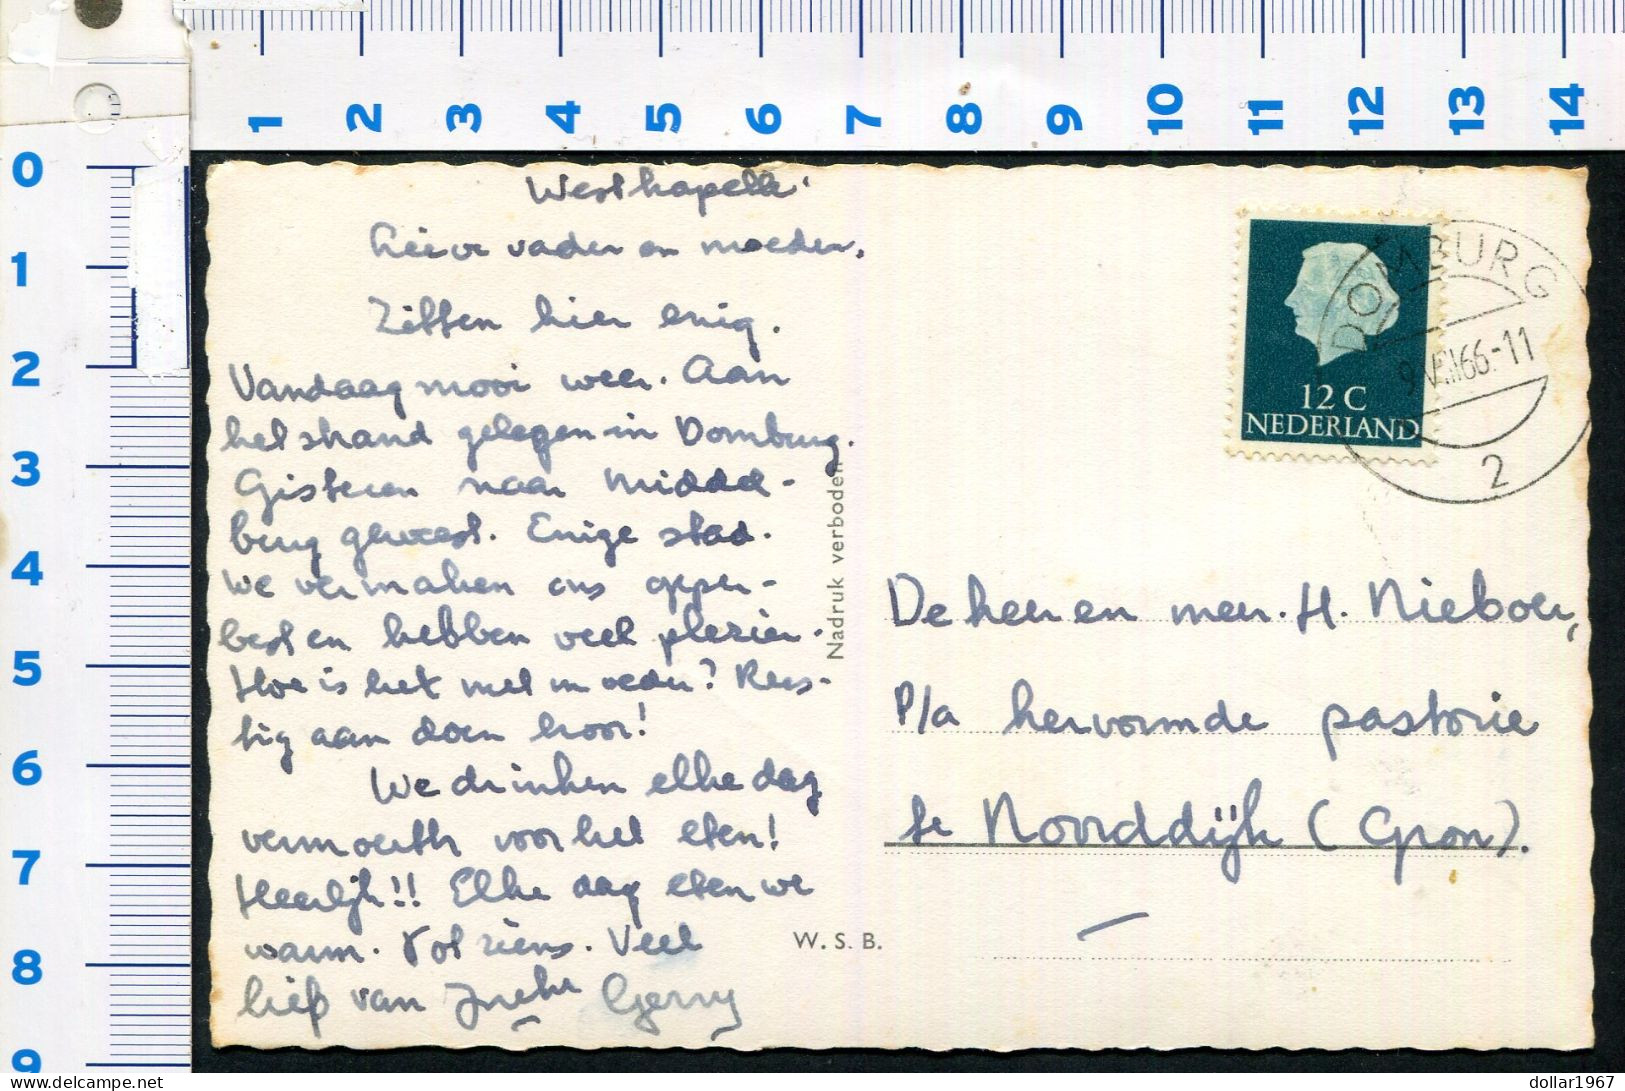 1 2 3 4 5 6 7 8 9 10 11 12 13 14
0
1
2
3
4
5
6
7
8
9
Westkapelle.
Lieve vader en moeder,
Zitten hier enig.
Vandaag mooi weer. Aan
het strand gelegen in Domburg.
Gisteren naar Middel-
burg geweest. Enige stad.
We vermaken ons opper-
best en hebben veel plezier.
Hoe is het met moeder? Rus-
tig aan doen hoor!
We drinken elke dag
vermouth voor het eten!
Heerlijk!! Elke dag eten we
warm. Tot ziens. Veel
liefs van Ineke Gerry
Nadruk verboden
W. S. B.
DOMBURG
66-11
2
12 C
NEDERLAND
De heer en mevr. H. Nieboer,
P/a hervormde pastorie
te Noorddijk (Gron).
dollar1967